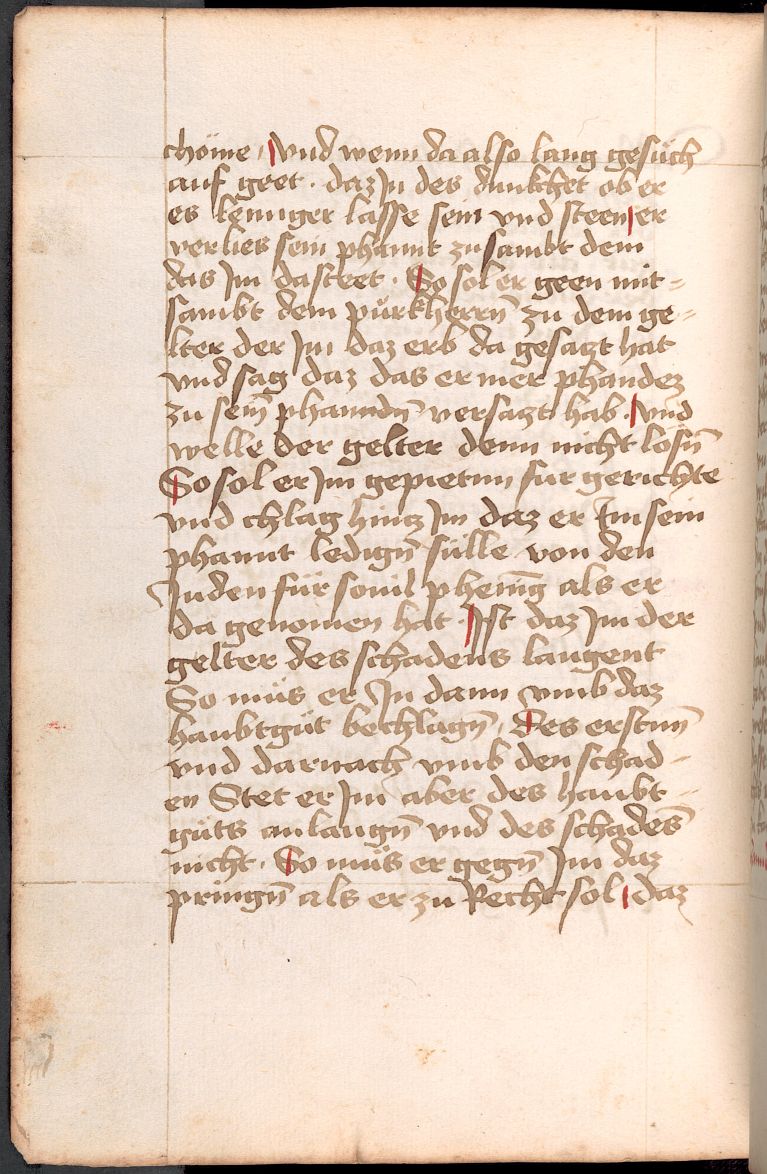 chöme · Vnd wenn da also lang gesuch
auf geet · daz In des dunkchet ob er
es lenniger lasse sein vnd steen er
verlies sein phannt zu sambt dem
das Im dasteet · So sol er geen mit=
sambt dem purkherrñ zu dem ge=
lter der Im daz erb da gesaczt hat
vnd sag daz das er nier phandez
zu seiñ phanndñ versaczt hab · Vnd
welle der gelter denn nicht losñ
So sol er Im gepietnn für gerichte
vnd chlag hincz Im daz er Im sein
phannt ledigñ sülle von den
Juden für souil phening als er
da genomen hat · Ist daz Im der
gelter des schadens laugent
So müs er In dann vmb daz
haubtgüt bechlagñ · Des erstnn
vnd darnach vmb den schad=
en Stet er Im aber des haubt=
güts anlaugñ vnd des schadeñs
nicht · So müs er gegñ Im daz
pringñ als er zu Recht sol · daz